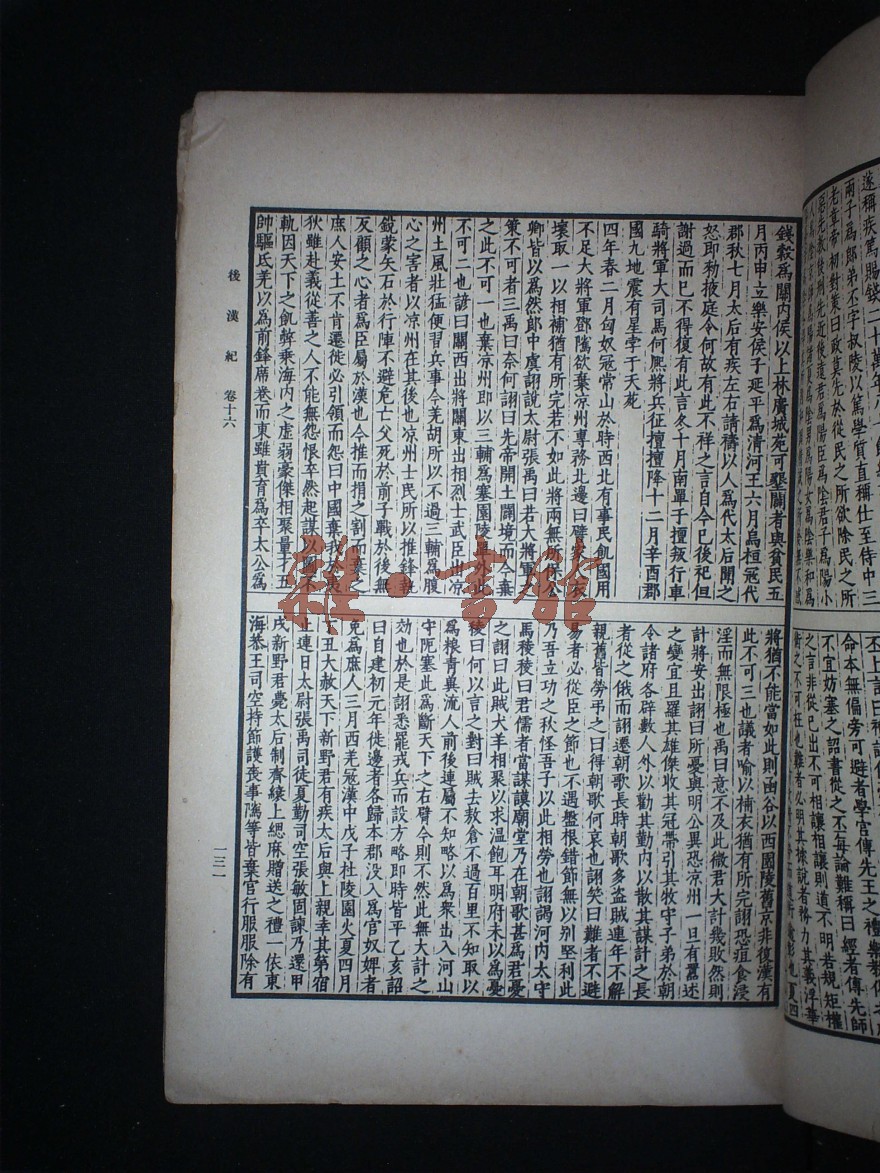 遂稱疾篤賜錢二十萬年八十餘
兩子爲郎弟丕字叔陵以篤學質直稱仕至侍中三
老章帝初對策曰政莫先於從民之所欲除民之所
惡先教後刑先近後遠君爲陽臣爲陰君子爲陽小
丕上言曰
命本無偏旁可避者學官傳先王之禮樂教化
不宜妨塞之詔書從之丕每論難稱曰經者傳先師
之言非從己出不可相讓相讓則道不明若規矩權
衡之不可枉也難者必明其據說者務力其義浮華
錢穀爲關內侯以上林廣城苑可墾闢者與貧民五
月丙申立樂安侯子延平爲清河王六月烏桓寇代
郡秋七月太后有疾左右請禱以人爲代太后聞之
怒即勑掖庭令何故有此不祥之言自今已後祀但
謝過而已不得復有此言冬十月南單于擅叛行車
騎將軍大司馬何熙將兵征擅擅降十二月辛酉郡
國九地震有星孛于天苑
四年春二月匈奴寇常山於時西北有事民飢國用
不足大將軍鄧隲欲棄凉州專務北邊曰譬家人衣
壞取一以相補猶有所完若不如此將兩無所保公
卿皆以爲然郎中虞詡說太尉張禹曰若大將軍之
策不可者三禹曰奈何詡曰先帝開土闢境而今棄
之此不可一也棄凉州即以三輔爲塞園陵單外此
不可二也諺曰關西出將關東出相烈士武臣出凉
州土風壯猛便習兵事今羌胡所以不過三輔爲腹
心之害者以凉州在其後也凉州士民所以推鋒執
銳蒙矢石於行陣不避危亡父死於前子戰於後無
反顧之心者爲臣屬於漢也今推而捐之割而棄之
庶人安土不肯遷徙必引領而怨曰中國棄我於夷
狄雖赴義從善之人不能無怨恨卒然起謀以圖不
軌因天下之飢弊乘海內之虛弱豪傑相聚量才立
帥驅氐羌以爲前鋒席卷而東雖賁育爲卒太公爲
將猶不能當如此則函谷以西園陵舊京非復漢有
此不可三也議者喻以補衣猶有所完詡恐疽食浸
淫而無限極也禹曰意不及此微君大計幾敗然則
計將安出詡曰所憂與明公異恐凉州一旦有囂述
之變宜且羅其雄傑收其冠帶引其牧守子弟於朝
令諸府各辟數人外以勸其勤內以散其謀計之長
者從之俄而詡遷朝歌長時朝歌多盜賊連年不解
親舊皆勞弔之曰得朝歌何哀也詡笑曰難者不避
易者必從臣之節也不遇盤根錯節無以別堅利此
乃吾立功之秋怪吾子以此相勞也詡謁河內太守
馬稜稜曰君儒者當謀謨廟堂乃在朝歌甚爲君憂
之詡曰此賊犬羊相聚以求溫飽耳明府未以爲憂
稜曰何以言之對曰賊去敖倉不過百里不知取以
爲糧青冀流人前後連屬不知略以爲衆出入河山
守阨塞此爲斷天下之右臂今則不然此無大計之
効也於是詡悉罷戎兵而設方略即時皆平乙亥詔
曰自建初元年徙邊者各歸本郡沒入爲官奴婢者
免爲庶人三月西羌寇漢中戊子杜陵園火夏四月
丁丑大赦天下新野君有疾太后與上親幸其第宿
止連日太尉張禹司徒夏勤司空張敏固諫乃還甲
戌新野君薨太后制齊縗上緦麻贈送之禮一依東
海恭王司空持節護喪事隲等皆棄官行服服除有
後漢紀 卷十六
一三一
雜·書館